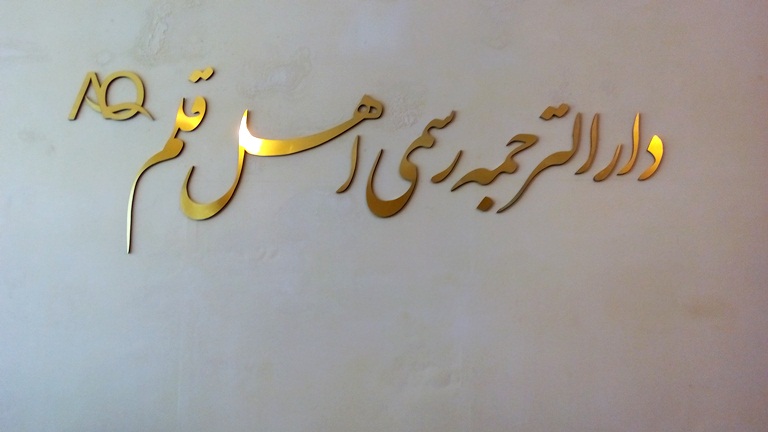 دارالترجمه رسمی اهل قلم AQ